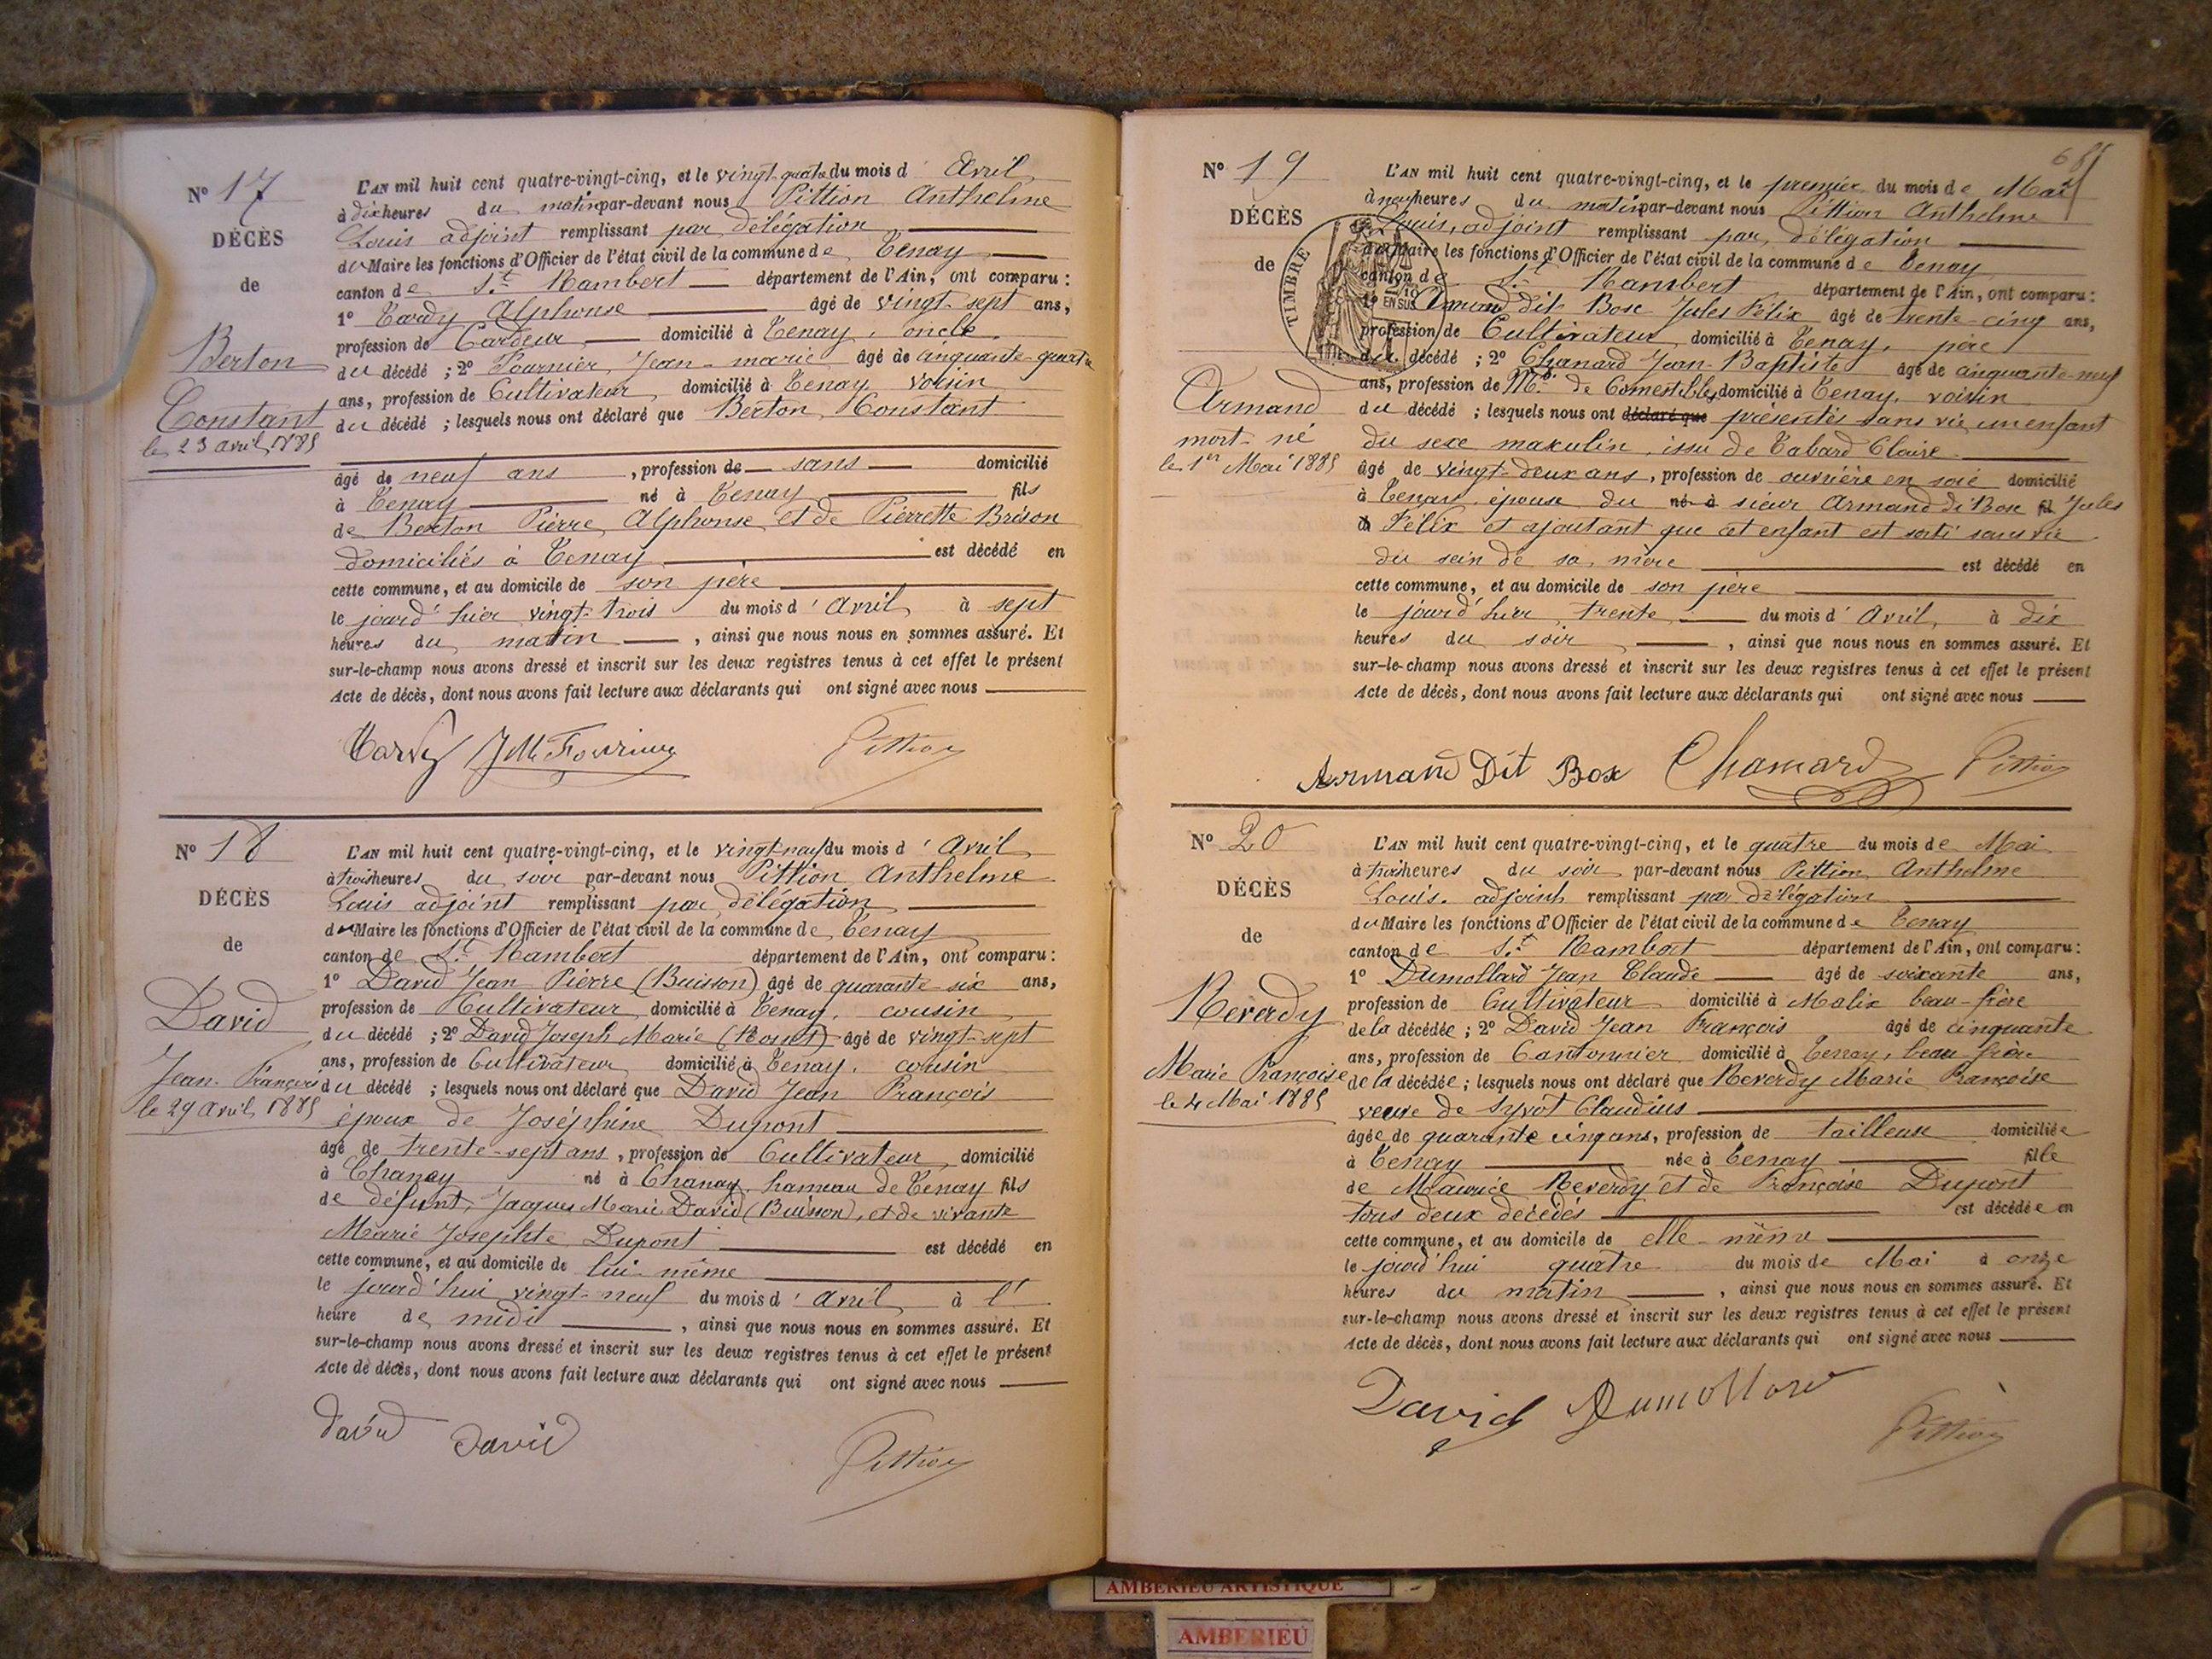 Nº 17
DÉCÈS
de
Berton
Constant
le 23 avril 1885
L'AN mil huit cent quatre-vingt-cinq, et le vingt-quatre du mois d' Avril
à dix heures du matin par-devant nous Pittion Anthelme
Louis adjoint remplissant par délégation
du Maire les fonctions d'Officier de l'état civil de la commune de Tenay
canton de St. Rambert département de l'Ain, ont comparu :
1º Tardy Alphonse âgé de vingt-sept ans,
profession de Cardeur domicilié à Tenay, oncle
du décédé ; 2º Fournier Jean-marie âgé de cinquante-quatre
ans, profession de Cultivateur domicilié à Tenay voisin
du décédé ; lesquels nous ont déclaré que Berton Constant
âgé de neuf ans , profession de sans domicilié
à Tenay né à Tenay fils
de Berton Pierre Alphonse et de Pierrette Brison
domiciliés à Tenay est décédé en
cette commune, et au domicile de son père
le jourd'hier vingt-trois du mois d' Avril à sept
heures du matin , ainsi que nous nous en sommes assuré. Et
sur-le-champ nous avons dressé et inscrit sur les deux registres tenus à cet effet le présent
Acte de décès, dont nous avons fait lecture aux déclarants qui ont signé avec nous
Tardy JM Fournier Pittion
Nº 18
DÉCÈS
de
David
Jean-François
le 29 avril 1885
L'AN mil huit cent quatre-vingt-cinq, et le vingt-neuf du mois d' Avril
à trois heures du soir par-devant nous Pittion Anthelme
Louis adjoint remplissant par délégation
du Maire les fonctions d'Officier de l'état civil de la commune de Tenay
canton de St. Rambert département de l'Ain, ont comparu :
1º David Jean Pierre (Buisson) âgé de quarante-six ans,
profession de Cultivateur domicilié à Tenay, cousin
du décédé ; 2º David Joseph Marie âgé de vingt-sept
ans, profession de Cultivateur domicilié à Tenay, cousin
du décédé ; lesquels nous ont déclaré que David Jean François
époux de Joséphine Dupont
âgé de trente-sept ans , profession de Cultivateur domicilié
à Chanay né à Chanay, hameau de Tenay fils
de défunt Jacques Marie David (Buisson), et de vivante
Marie Josephte Dupont est décédé en
cette commune, et au domicile de lui-même
le jourd'hui vingt-neuf du mois d' Avril à l'
heure de midi , ainsi que nous nous en sommes assuré. Et
sur-le-champ nous avons dressé et inscrit sur les deux registres tenus à cet effet le présent
Acte de décès, dont nous avons fait lecture aux déclarants qui ont signé avec nous
David David Pittion
Nº 19
DÉCÈS
de
Armand
mort-né
le 1er Mai 1885
TIMBRE
2/10 EN SUS
L'AN mil huit cent quatre-vingt-cinq, et le premier du mois de Mai
à neuf heures du matin par-devant nous Pittion Anthelme
Louis, adjoint remplissant par délégation
du Maire les fonctions d'Officier de l'état civil de la commune de Tenay
canton de St. Rambert département de l'Ain, ont comparu :
1º Armand dit Bose Jules Félix âgé de trente-cinq ans,
profession de Cultivateur domicilié à Tenay, père
du décédé ; 2º Chanard Jean-Baptiste âgé de cinquante-neuf
ans, profession de Md. de Comestibles domicilié à Tenay, voisin
du décédé ; lesquels nous ont déclaré que présentés sans vie un enfant
du sexe masculin, issu de Tabard Claire
âgé de vingt-deux ans , profession de ouvrière en soie domicilié
à Tenay, épouse du né à sieur Armand dit Bose fil Jules
Félix et ajoutant que cet enfant est sorti sans vie
du sein de sa mère est décédé en
cette commune, et au domicile de son père
le jourd'hier trente du mois d' Avril à dix
heures du soir , ainsi que nous nous en sommes assuré. Et
sur-le-champ nous avons dressé et inscrit sur les deux registres tenus à cet effet le présent
Acte de décès, dont nous avons fait lecture aux déclarants qui ont signé avec nous
Armand Dit Box Chamard Pittion
Nº 20
DÉCÈS
de
Reverdy
Marie Françoise
le 4 Mai 1885
L'AN mil huit cent quatre-vingt-cinq, et le quatre du mois de Mai
à trois heures du soir par-devant nous Pittion Anthelme
Louis, adjoint remplissant par délégation
du Maire les fonctions d'Officier de l'état civil de la commune de Tenay
canton de St. Rambert département de l'Ain, ont comparu :
1º Dumollard Jean Claude âgé de soixante ans,
profession de Cultivateur domicilié à Malix beau-frère
de la décédée ; 2º David Jean François âgé de cinquante
ans, profession de Cantonnier domicilié à Tenay, beau frère
de la décédée ; lesquels nous ont déclaré que Reverdy Marie Françoise
veuve de Syvot Claudius
âgée de quarante cinq ans, profession de tailleuse domiciliée
à Tenay née à Tenay fille
de Maurice Reverdy et de Françoise Dupont
tous deux décédés est décédée en
cette commune, et au domicile de elle-même
le jourd'hui quatre du mois de Mai à onze
heures du matin , ainsi que nous nous en sommes assuré. Et
sur-le-champ nous avons dressé et inscrit sur les deux registres tenus à cet effet le présent
Acte de décès, dont nous avons fait lecture aux déclarants qui ont signé avec nous
David Dumollard Pittion
AMBERIEU ARTISTIQUE
AMBERIEU